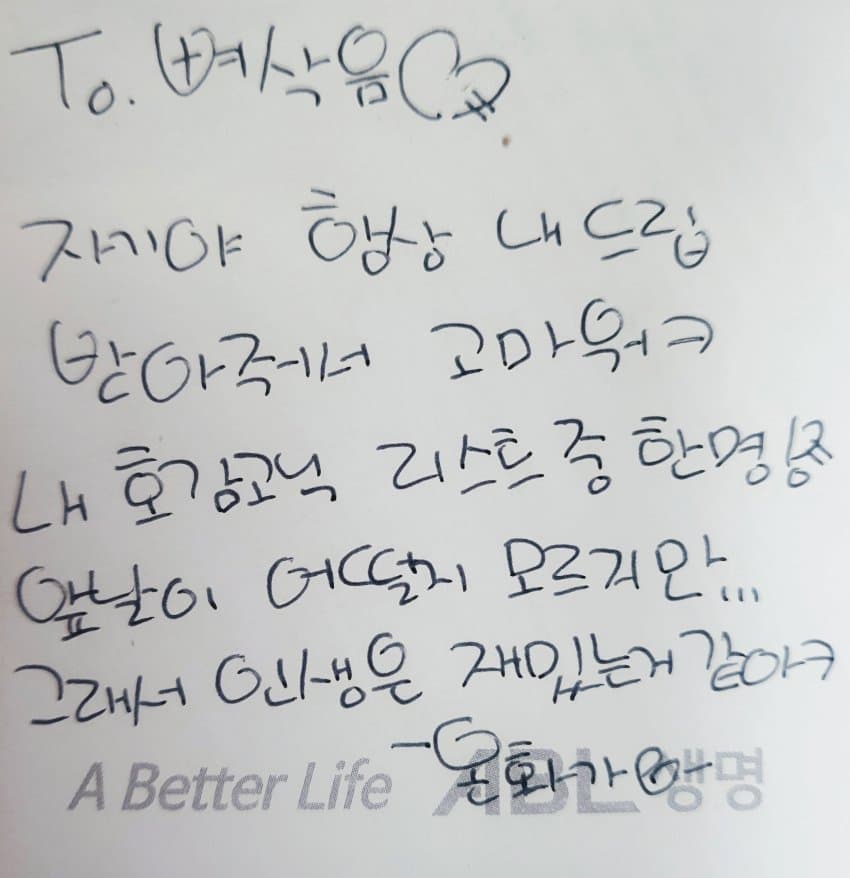 To. 벼삭음
자기야 항상 내 드립
받아줘서 고마워ㅋ
내 호감고닉 리스트 중 한명
앞날이 어떨지 모르지만...
그래서 인생은 재밌는거 같아ㅋ
- 은화가
A Better Life ABL생명